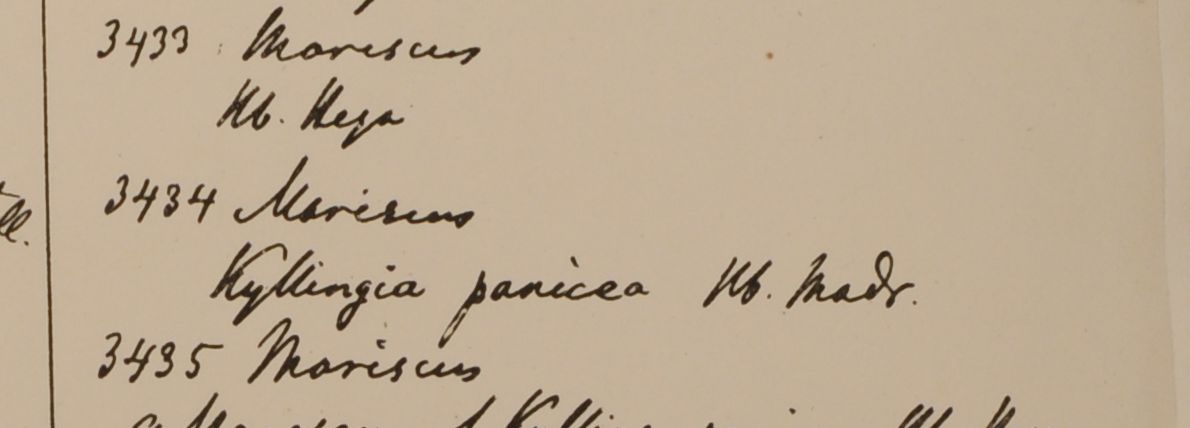 3433 Mariscus
Hb. Heyn
3434 Mariscus
Kyllingia panicea Hb. Madr.
3435 Mariscus